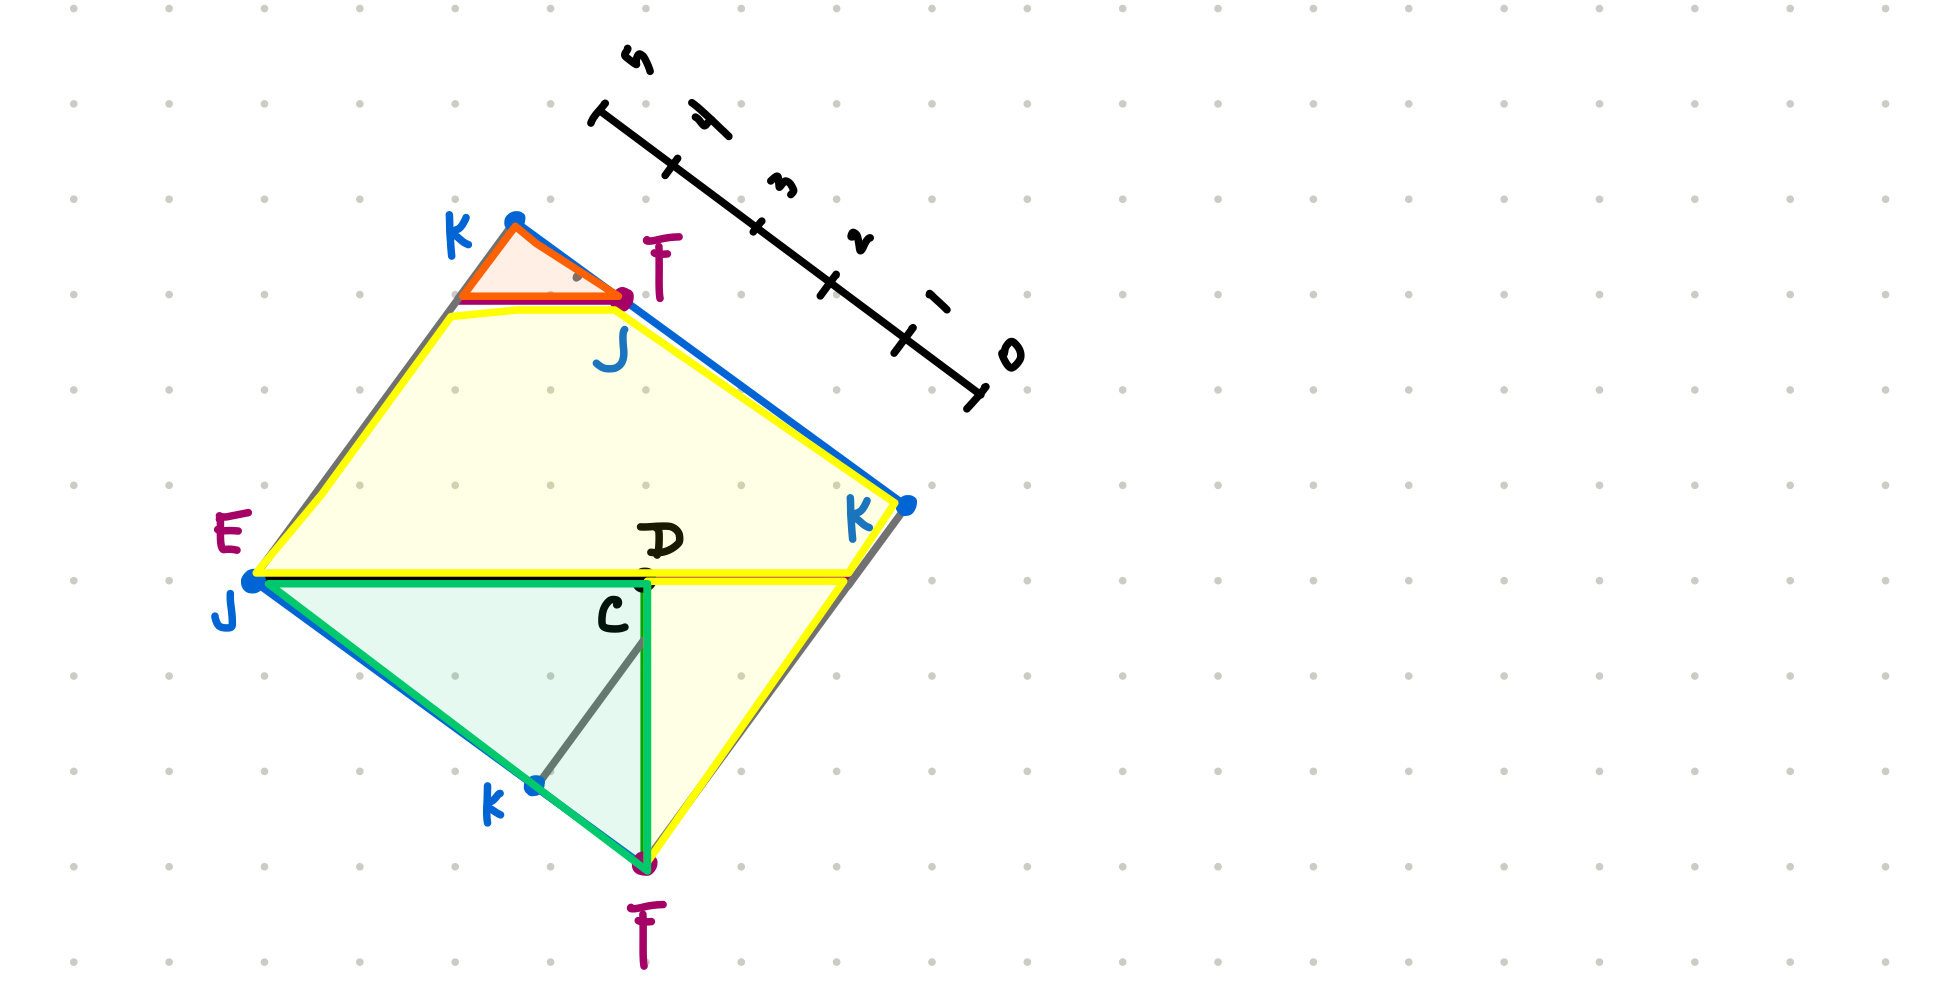 5
4
3
2
1
0
K
F
J
E
D
K
J
C
K
F